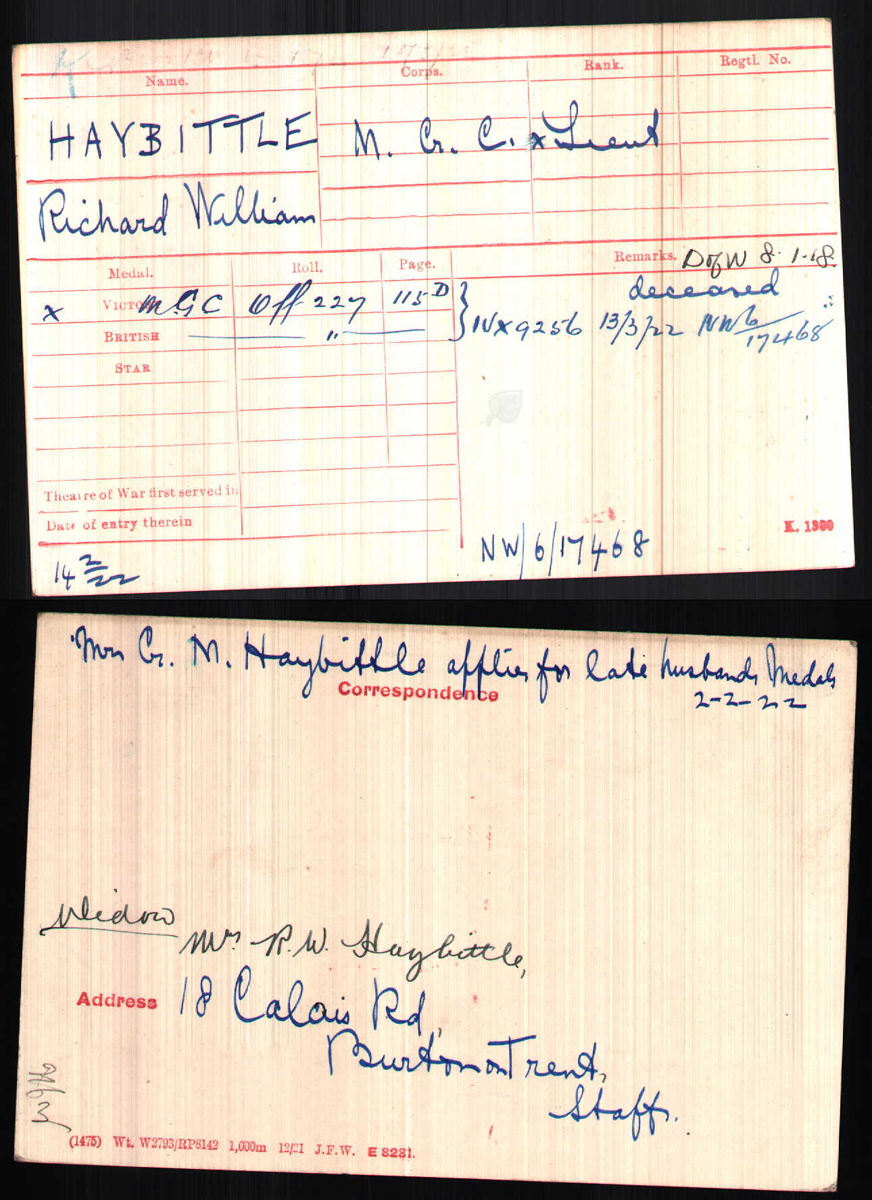 Name. Corps. Rank. Regtl. No.
HAYBITTLE M. G. C. x Lieut
Richard William
Medal. Roll. Page. Remarks. D of W 8.1.18.
deceased
x VICTORY MGC Off 227 115 D } IVX9256 13/3/22 NW6/17468
BRITISH "
STAR
Theatre of War first served in
Date of entry therein
K. 1380
NW/6/17468
14 2/22
Mrs G. M. Haybittle applies for late husbands Medals
Correspondence
2-2-22
Widow
Mrs R.W. Haybittle,
Address 18 Calais Rd,
Burton on Trent,
Staffs.
(1475) Wt. W2793/RP8142 1,000m 12/21 J.F.W. E 8281.